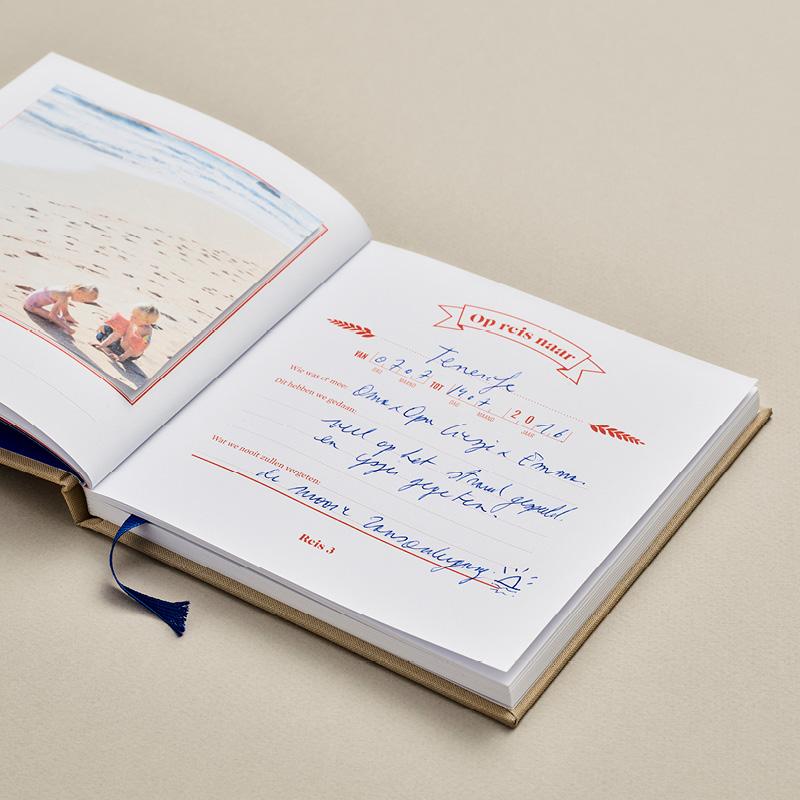 Op reis naar
Tenerife
VAN 07 07 TOT 14 07 2016
DAG MAAND DAG MAAND JAAR
Wie was er mee: Oma & Opa Liezje & Emma.
Dit hebben we gedaan:
veel op het strand gespeeld.
en ijsjes gegeten.
Wat we nooit zullen vergeten:
de mooie zonsondergang.
Reis 3